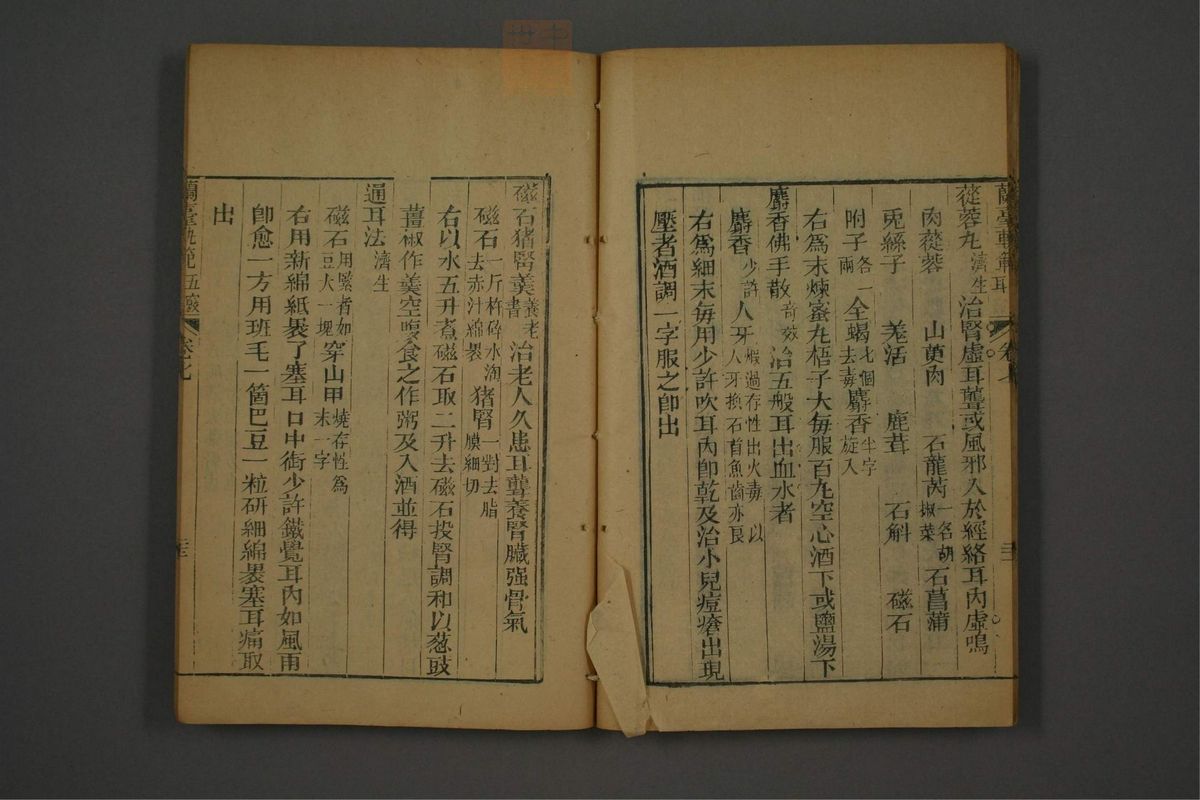 蘭臺軌範 耳 卷七
蓯蓉丸 濟生 治腎虛耳聾或風邪入於經絡耳內虛鳴
肉蓯蓉 山萸肉 石龍芮 一名胡椒菜 石菖蒲
兎絲子 羌活 鹿茸 石斛 磁石
附子 各一兩 全蝎 七個去毒 麝香 半字旋入
右爲末煉蜜丸梧子大每服百丸空心酒下或鹽湯下
麝香佛手散 奇效 治五般耳出血水者
麝香 少許 人牙 煆過存性出火毒 以人牙換石首魚齒亦良
右爲細末每用少許吹耳內卽乾及治小兒痘瘡出現
壓者酒調一字服之卽出
磁石猪腎羹 養老書 治老人久患耳聾養腎臟强骨氣
磁石 一斤杵碎水淘去赤汁綿裹 猪腎 一對去脂膜細切
右以水五升煮磁石取二升去磁石投腎調和以葱豉
薑椒作羹空腹食之作粥及入酒並得
通耳法 濟生
磁石 用緊者如豆大一塊 穿山甲 燒存性爲末一字
右用新綿紙裹了塞耳口中銜少許鐵覺耳內如風雨
卽愈一方用班毛一箇巴豆一粒研細綿裹塞耳痛取
出
蘭臺軌範 卷七